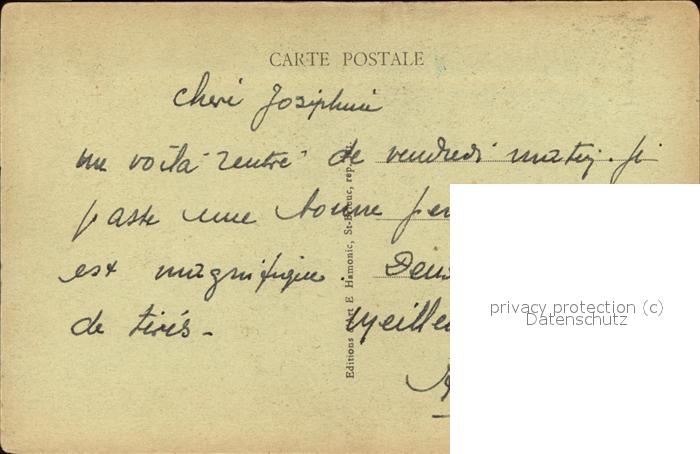 CARTE POSTALE
cheri Josiphine
me voila rentré de vendredi matin. Je
passe une bonne
est magnifique. Deux
de tirés -
Meille
Editions d'Art E. Hamonic, St-Brieuc, rep.
privacy protection (c)
Datenschutz